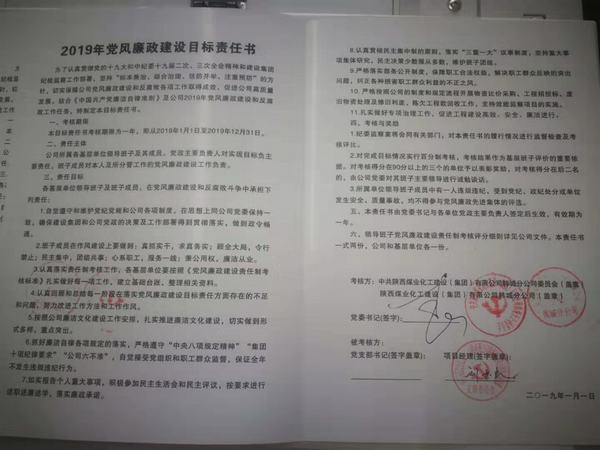 2019年党风廉政建设目标责任书
为了认真贯彻党的十九大和中纪委十九届二次、三次全会精神和建设集团
纪检监察工作部署，坚持“标本兼治、综合治理、惩防并举、注重预防”的方
针，切实保证公司党风廉政建设和反腐败各项工作取得成效，促进公司高质量
发展，联合《中国共产党廉洁自律准则》及公司2019年党风廉政建设和反腐败
工作任务，特制定本目标责任书。
一、考核期限
本目标责任书考核期限为一年，即从2019年1月1日至2019年12月31日。
二、责任主体
公司所属各基层单位领导班子及其成员。党政主要负责人对实现目标负主
要责任，班子成员对本人及所分管工作的党风廉政建设工作负责。
三、责任目标
各基层单位领导班子及班子成员，在党风廉政建设和反腐败斗争中承担下
列责任：
1.自觉遵守和维护党纪党规和公司各项制度，在思想上同公司党委保持一
致，确保建设集团和公司党政的决策及工作部署得到贯彻落实，做到令行
禁止。
2.班子成员在作风建设上要做到：真抓实干，求真务实；顾全大局，令行
禁止；民主集中，团结共事；心系职工，服务一线；秉公用权，廉洁从业。
3.认真落实责任制考核工作，各基层单位要按照《党风廉政建设责任制
考核标准》扎实做好每一项工作，建立基础台账，整理相关资料。
4.认真回顾和总结每一阶段在落实党风廉政建设目标责任方面存在的不足
和问题，努力改进工作方法和工作作风。
5.按照公司廉洁文化建设工作安排，扎实推进廉洁文化建设，切实做到形
式多样，重点突出。
6.抓好廉洁自律各项规定的落实，严格遵守“中央八项规定精神”“集团
十项纪律要求”“公司六不准”，自觉接受党组织和职工群众监督，保证全年
不发生违规违纪行为。
7.如实报告个人重大事项，积极参加民主生活会和民主评议，按要求进行
述职述廉述学，落实廉政承诺。
8.认真贯彻民主集中制的原则，落实“三重一大”议事制度，坚持重大事
项集体研究，民主决策少数服从多数，维护班子团结。
9.严格落实服务公开制度，保障职工合法权益，解决职工群众反映的突出
问题，纠正各种损害职工群众利益的不正之风。
10.严格按照公司的制度和规定流程开展物资比价采购、工程招投标、废
旧物资处理及修旧利废、陈欠工程款回收工作，支持效能监察项目的实施。
11.扎实做好专项治理工作，促进工程建设高效、安全、廉洁进行。
四、考核与奖励
1.纪委监察室将会同有关部门，对本责任书的履行情况进行监督检查及考
核评比。
2.对完成目标情况实行百分制考核，考核结果作为基层班子评价的重要依
据。对考核得分在90分以上的三个单位给予以表彰奖励，对考核得分在后二名
的，由公司党委对其班子主要领导进行诫勉谈话。
3.所属单位领导班子成员中有一人违规违纪，受到党纪、政纪处分或单位
发生安全、质量事故，均不得参与党风廉政先进集体的评选。
五、本责任书由党委书记与各单位党政主要负责人签定后生效，有效期为
一年。
六、领导班子党风廉政建设责任制考核评分细则详见公司文件。本责任书
一式两份，公司和基层单位各一份。
考核方：中共陕西煤业化工建设（集团）有限公司韩城分公司委员会（盖章）
陕西煤业化工建设（集团）有限公司韩城分公司（盖章）
党委书记(签字)：
被考核方：
党支部书记(签字盖章)： 项目经理(签字盖章)：
二〇一九年一月一日